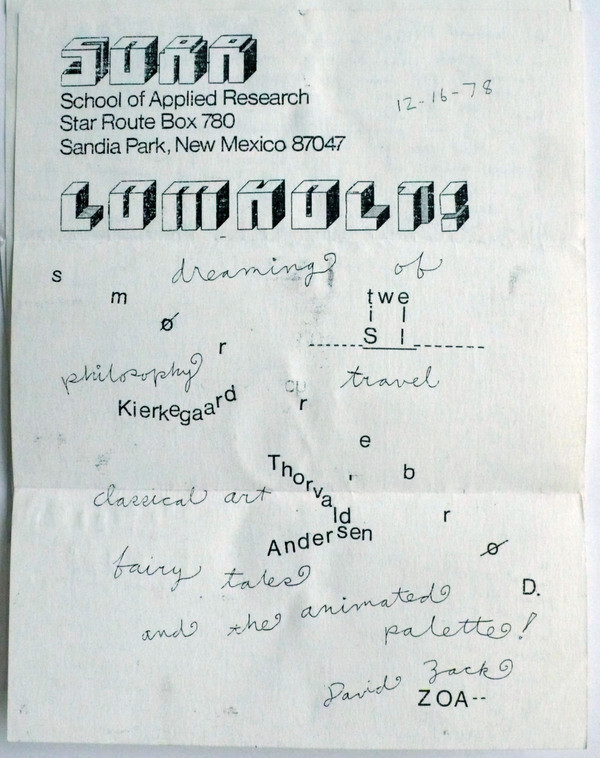 SOAR
School of Applied Research
Star Route Box 780
Sandia Park, New Mexico 87047
12-16-78
LOMHOLT!
dreaming of
s
m
ø
r
r
e
b
r
ø
D.
twe
philosophy
travel
Kierkegaard
classical art
Thorvald
Andersen
fairy tales
and the animated
palette!
David Zack
ZOA--